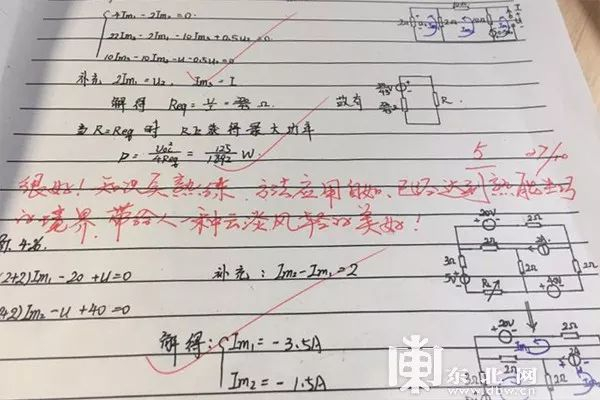 4Im₁-2Im₂=0.
22Im₂-2Im₁-10Im₃+0.5u₂=0
10Im₃-10Im₂-u-0.5u₂=0
补充 2Im₁=u₂, Im₃=I
解得 Req= Ω 故有
当R=Req时 R上获得最大功率
P=Uoc²/4Req=125/1392 W.
5 27/10
很好！知识点熟练，方法应用自如，已经达到熟能生巧
的境界，带给人一种云淡风轻的美好！
4-26.
(2+2)Im₁-20+u=0 补充：Im₂-Im₁=2
+2)Im₂-u+40=0
解得：Im₁=-3.5A
Im₂=-1.5A
20V 2Ω
2Ω 2A
3Ω 2Ω 2Ω
5V 40V
20V 2Ω
2Ω 2A
东北网
www.dbw.cn